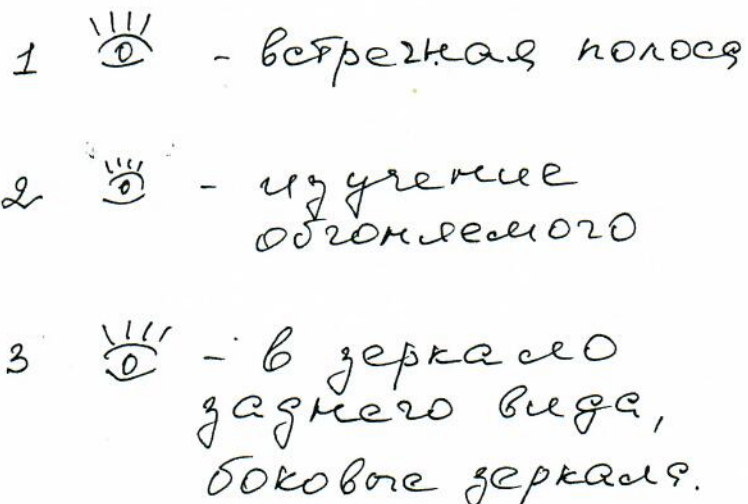 1 - встречная полоса
2 - изучение
обгоняемого
3 - в зеркало
заднего вида,
боковые зеркала.